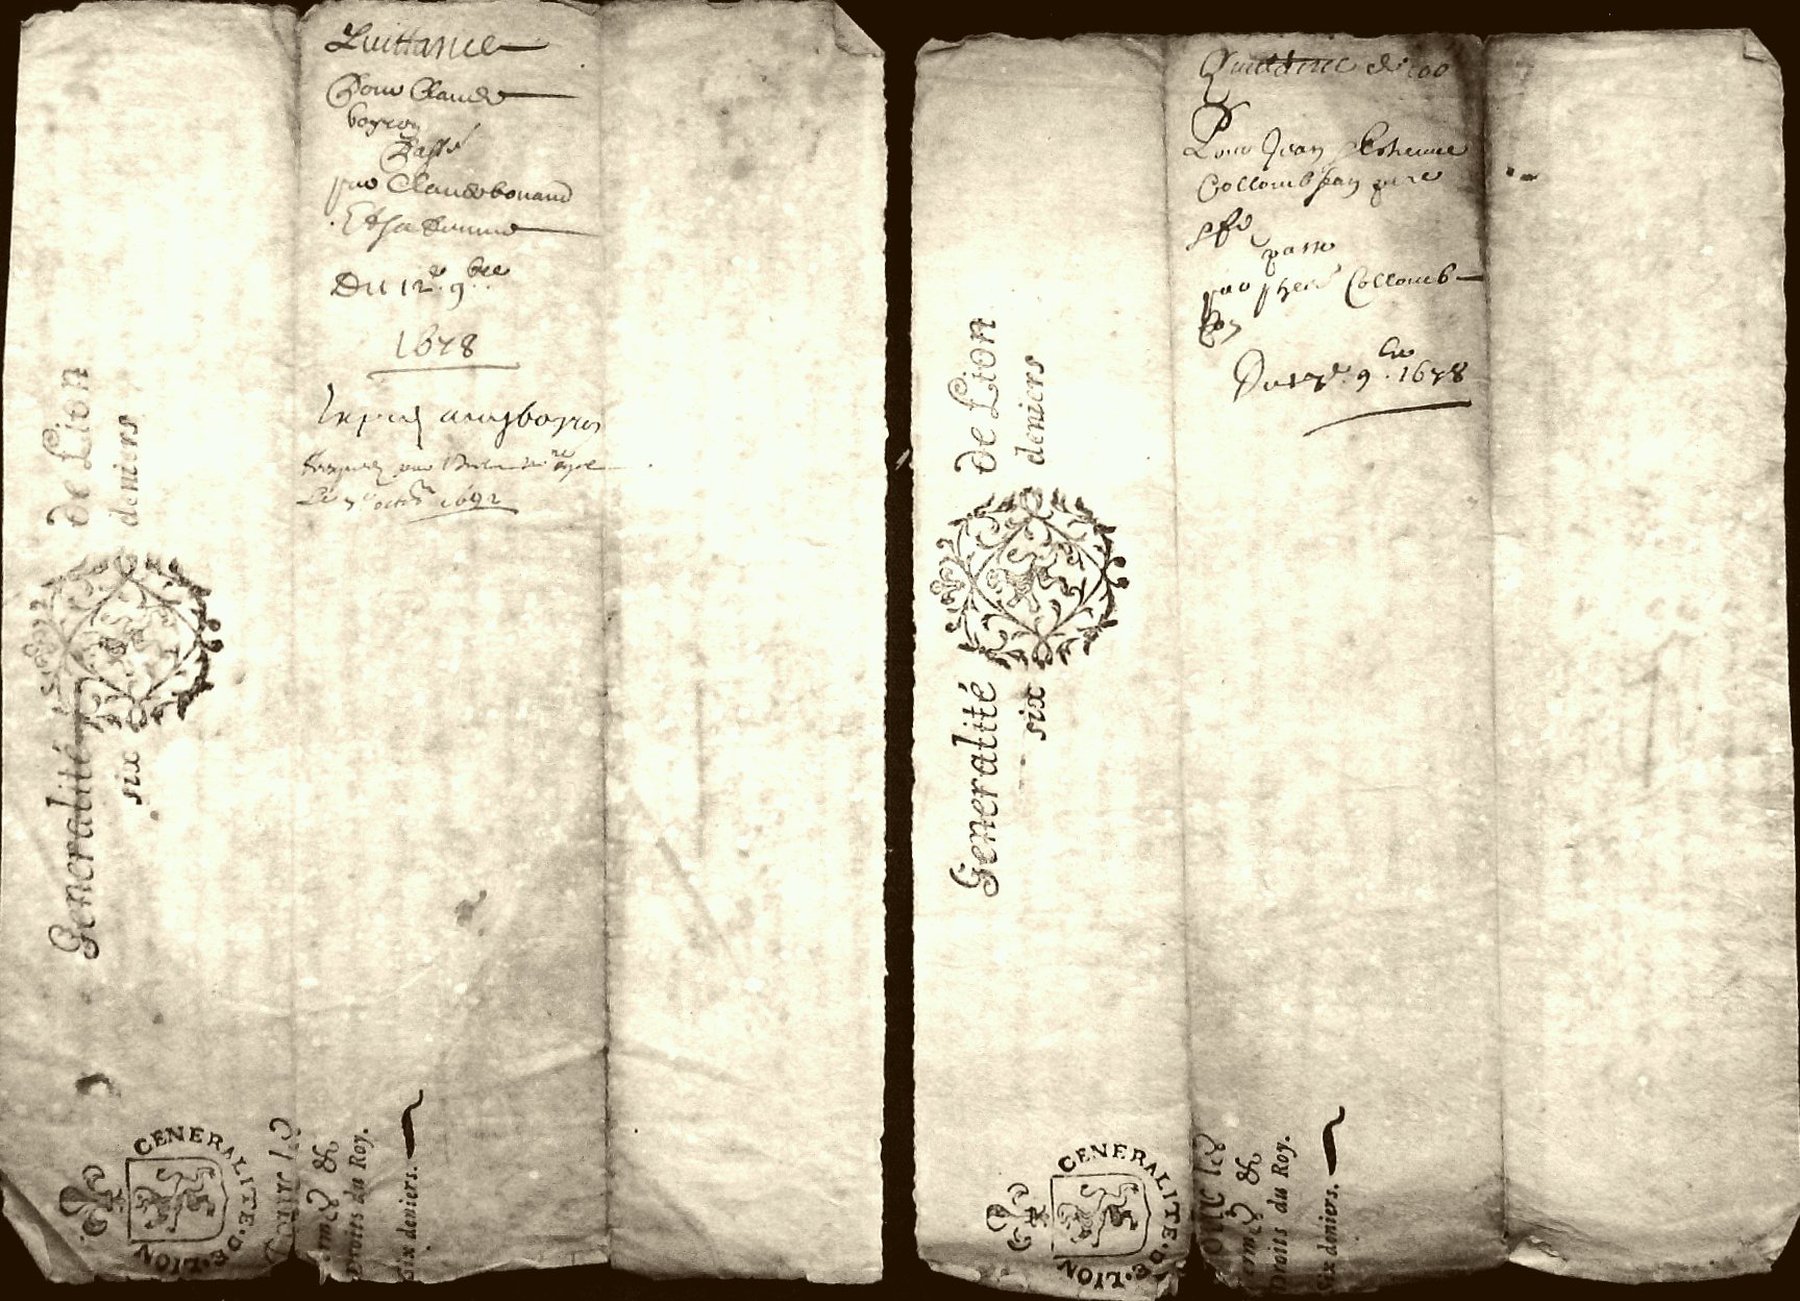 Quittance
Pour Claude
boyron
Passé
par Claude bonand
Et sa femme
Du 12e 9bre
1678
boyron
Le octbre 1692
Generalité de Lion
six deniers
GENERALITE·DE·LION
Pour les
Fermes &
Droits du Roy.
Six deniers.
Quittance de 100
Pour Jean
Collomb son pere
passé
par Collomb
Du 9bre 1678
Generalité de Lion
six deniers
GENERALITE·DE·LION
Pour les
Fermes &
Droits du Roy.
Six deniers.